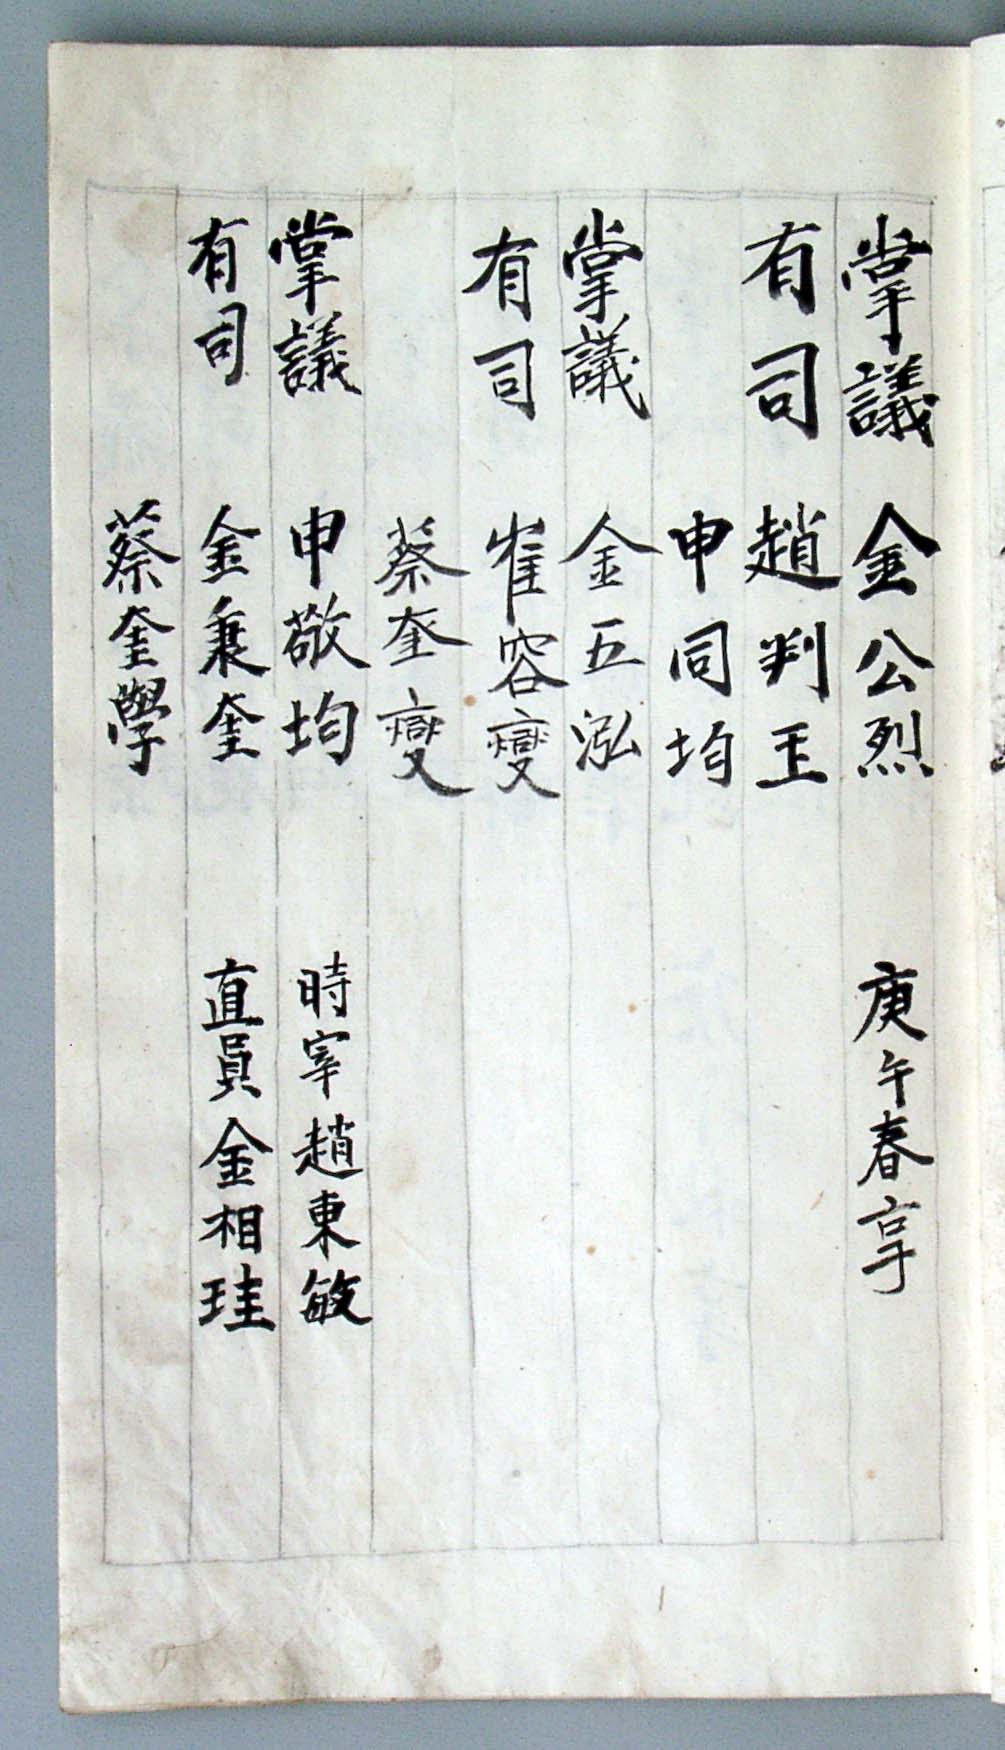 掌議 金公烈 庚午春享
有司 趙判玉
申同均
掌議 金五泓
有司 崔容燮
蔡奎燮
掌議 申敬均 時宰趙東敏
有司 金秉奎 直員金相珪
蔡奎學